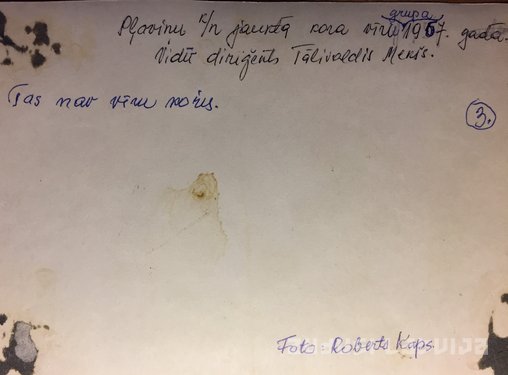 Pļaviņu k/n jauktā kora vīru grupa 1967. gadā.
Vidū diriģents Tālivaldis Mekšs.
Tas nav vīru koris.
3.
Foto: Roberts Kaps.